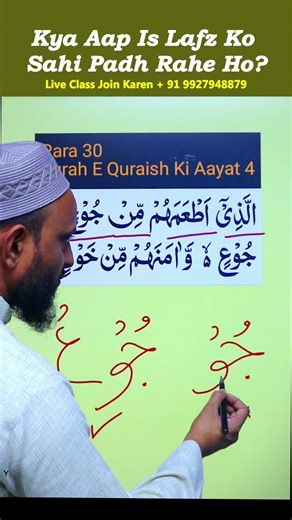 Kya Aap Is Lafz Ko
Sahi Padh Rahe Ho?
Live Class Join Karen + 91 9927948879
Para 30
Surah E Quraish Ki Aayat 4
الَّذِيْٓ اَطْعَمَهُمْ مِّنْ جُوْعٍ
جُوْعٍ ۙ۬ وَّاٰمَنَهُمْ مِّنْ خَوْفٍ
جُوْ عٍ جُوْ